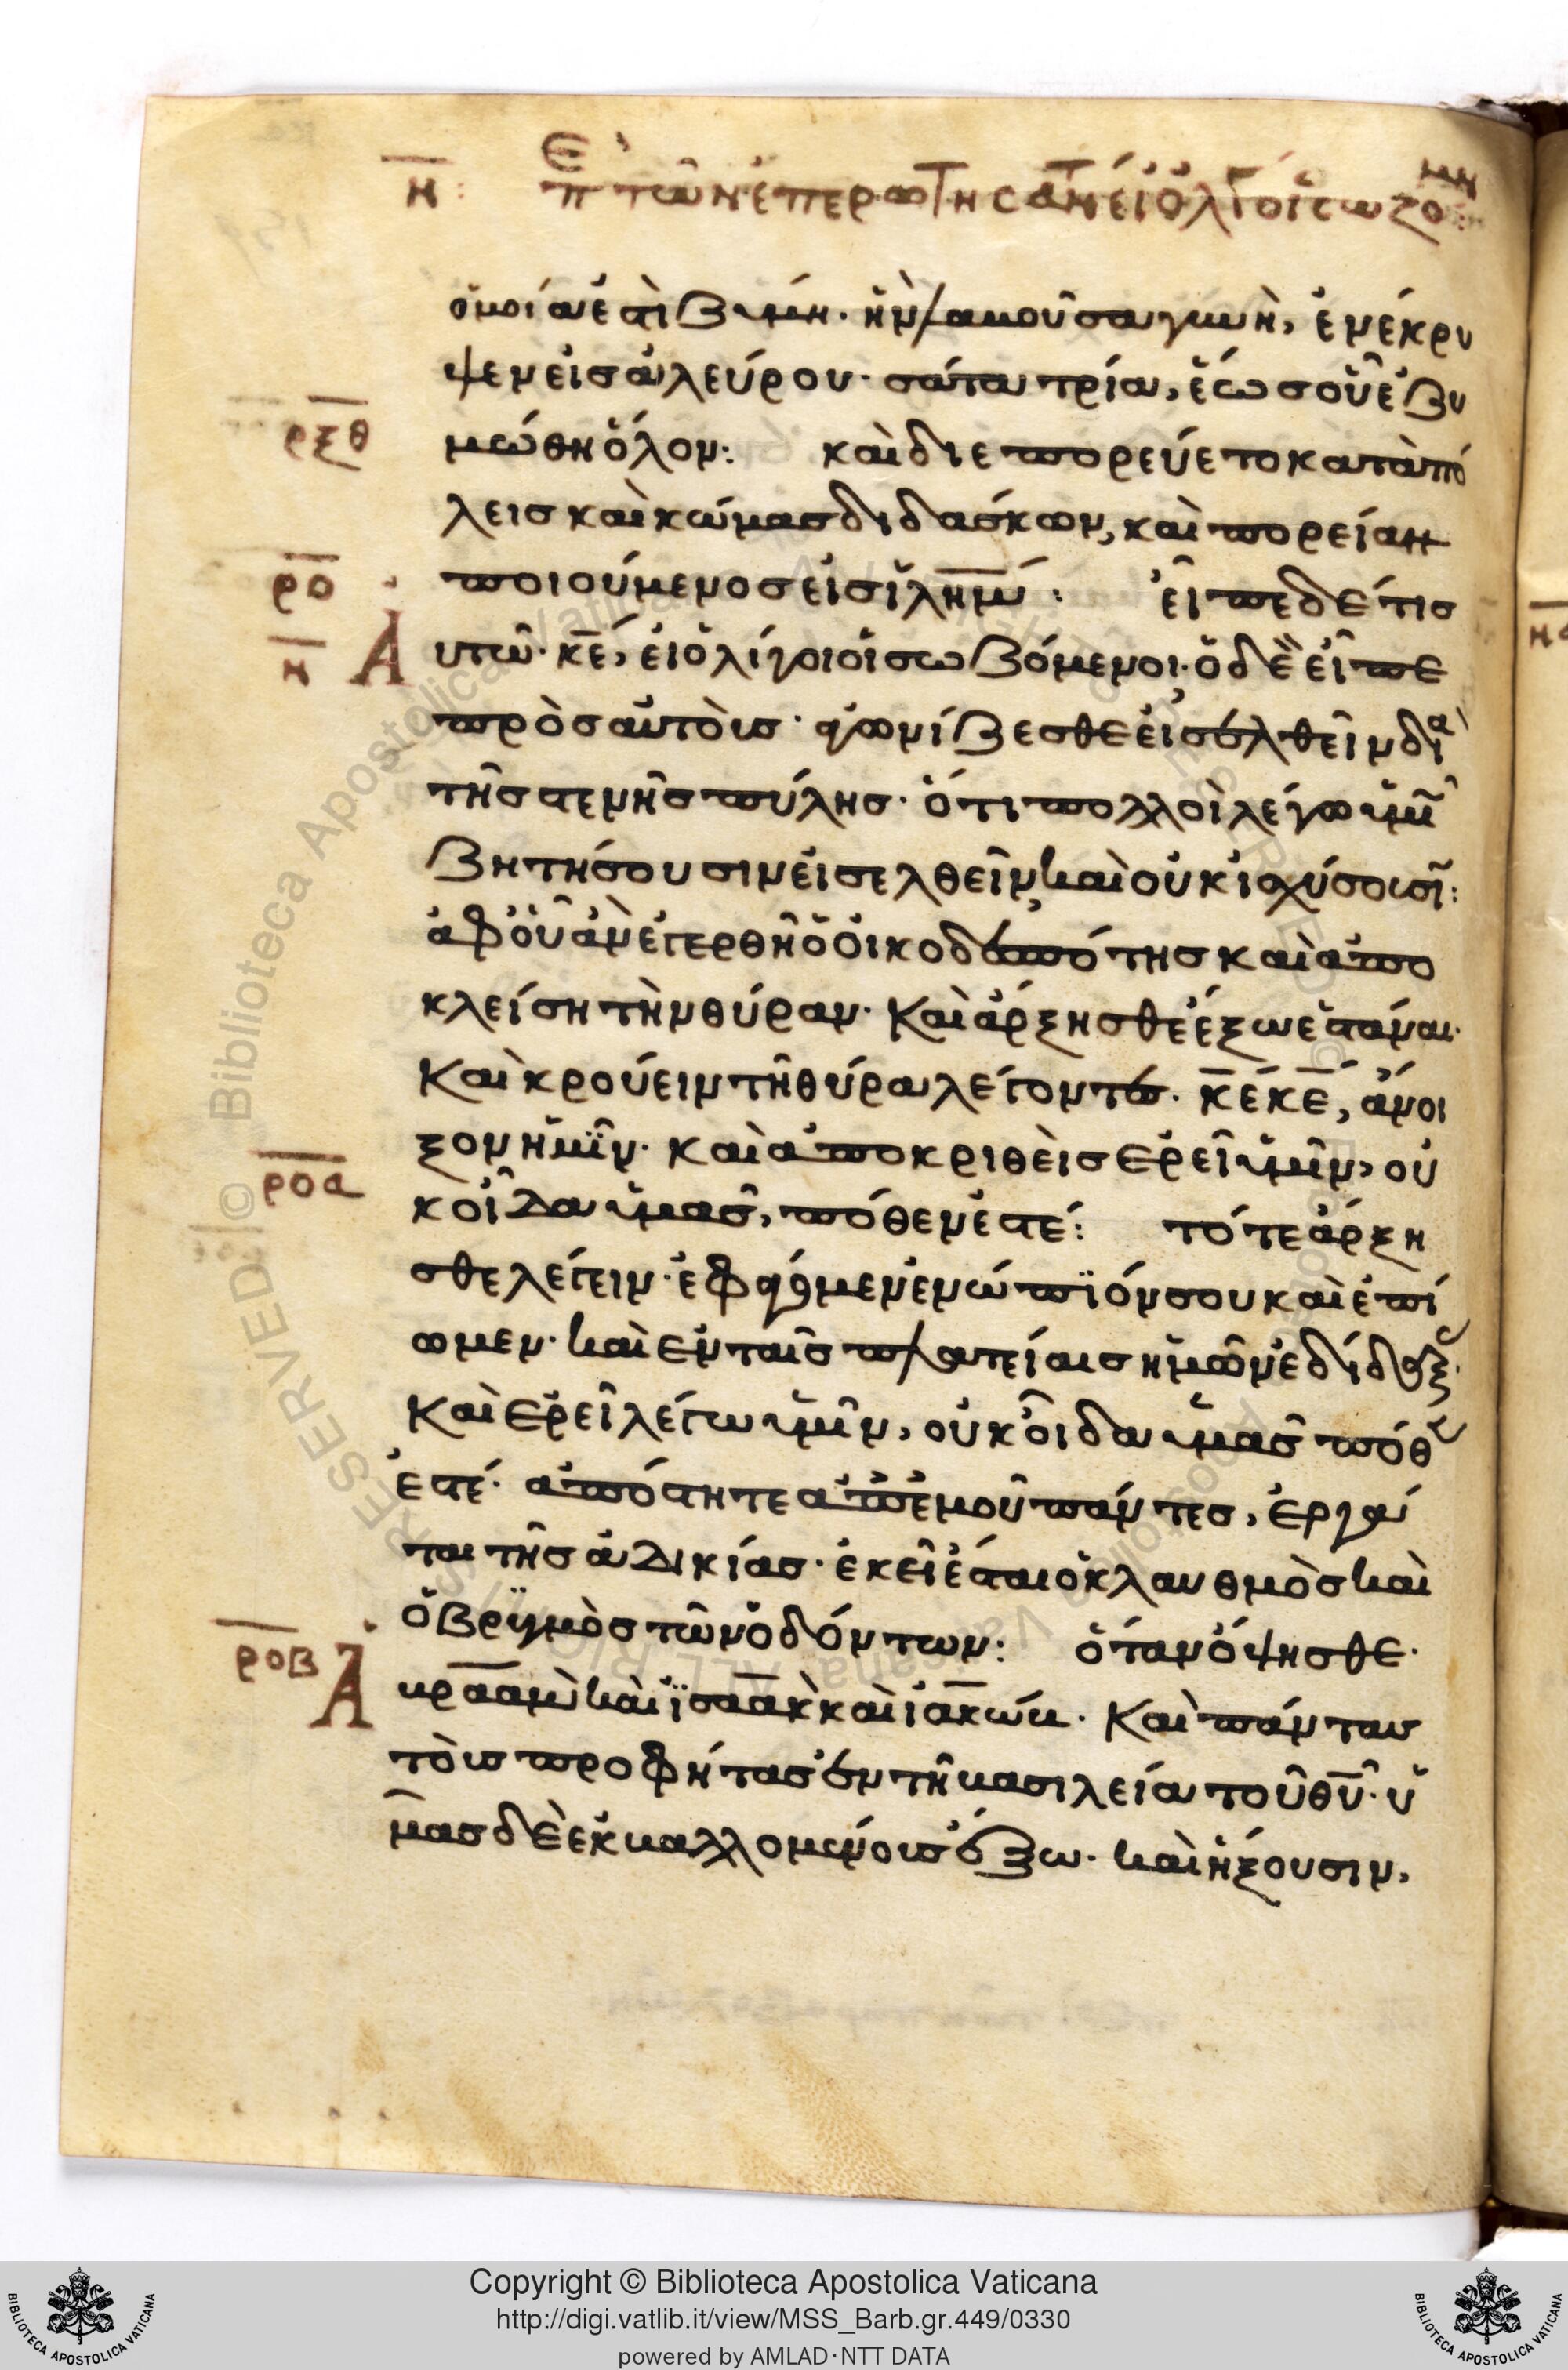 η: Επ τῶν ἐπερωτησάντ εἰ ὀλίγοι οἱ σωζομεν
ὁμοία ἐστὶ ζύμη. ἣν λαβοῦσα γυνὴ, ἐνέκρυ
ψεν εἰς ἀλεύρου. σάτα τρία, ἕως οὗ ἐζυ
ρξθ
μώθη ὅλον: καὶ διεπορεύετο κατὰ πό
λεις καὶ κώμας διδάσκων, καὶ πορείαν
ρο
ποιούμενος εἰς ἰλημ̅: εἶπε δέ τις
η
Αυτῶ. κε̅, εἰ ὀλίγοι οἱ σωζόμενοι. ὁ δὲ εἶπε
πρὸς αὐτοὺς. ἀγωνίζεσθε εἰσελθεῖν δια
τῆς στενῆς πύλης. ὅτι πολλοὶ λέγω ὑμῖ
ζητήσουσιν εἰσελθεῖν, καὶ οὐκ ἰσχύσουσῖ:
ἀφ οὗ ἂν ἐγερθῆ ὁ οἰκοδεσπότης καὶ ἀπο
κλείση τὴν θύραν. Καὶ ἄρξησθε ἔξω ἑστάναι.
Καὶ κρούειν τῆ θύρα λέγοντες. κε̅ κε̅, ἄνοι
ξον ἡμῖν. καὶ ἀποκριθεὶς ἐρεῖ ὑμῖν, οὐ
ροα
κ οἶδα ὑμᾶς, πόθεν ἐστέ: τότε ἄρξη
σθε λέγειν. ἐφάγομεν ἐνώπϊόν σου καὶ ἐπί
ομεν. καὶ ἐν ταῖς πλατείαις ἡμῶν ἐδίδαξ.
Καὶ ἐρεῖ λέγω ὑμῖν, οὐκ οἶδα ὑμᾶς πόθ
ἐστέ. ἀπόστητε ἀπ ἐμοῦ πάντες, ἐργά
ται τῆς ἀδικίας. ἐκεῖ ἔσται ὁ κλαυθμὸς καὶ
ὁ βρυγμὸς τῶν ὀδόντων: ὅταν ὄψησθε.
ροβ
Αβρααμ̅ καὶ ϊσαὰκ καὶ ἰακώβ. Καὶ πάντας
τοὺς προφήτας ἐν τῆ βασιλεία τοῦ θυ̅. ὑ
μᾶς δὲ ἐκβαλλομένους ἔξω. καὶ ἥξουσιν,
Copyright © Biblioteca Apostolica Vaticana
http://digi.vatlib.it/view/MSS_Barb.gr.449/0330
powered by AMLAD·NTT DATA